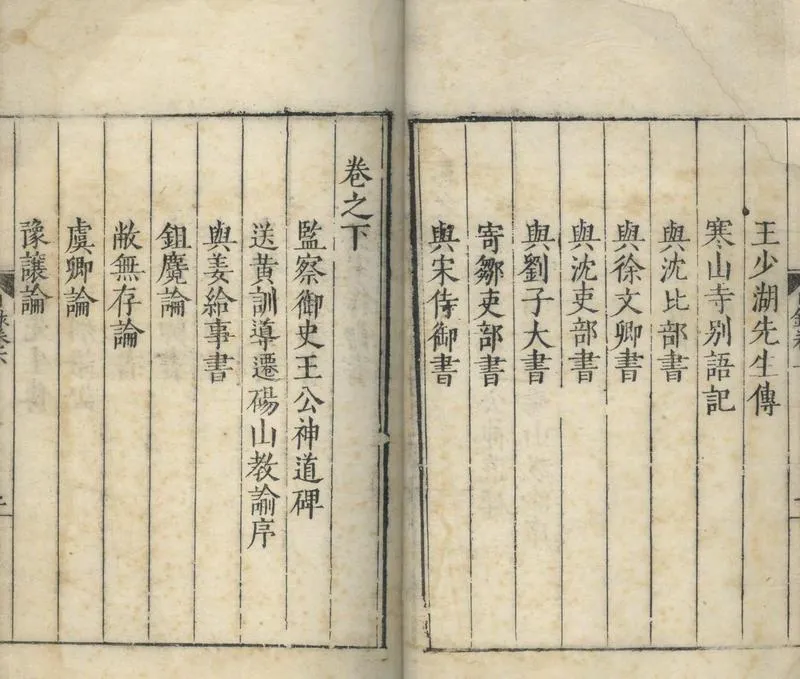 王少湖先生傳
寒山寺別語記
與沈比部書
與徐文卿書
與沈吏部書
與劉子大書
寄鄒吏部書
與宋侍御書
卷之下
監察御史王公神道碑
送黃訓導遷碭山教諭序
與姜給事書
鉏麑論
敝無存論
虞卿論
豫讓論